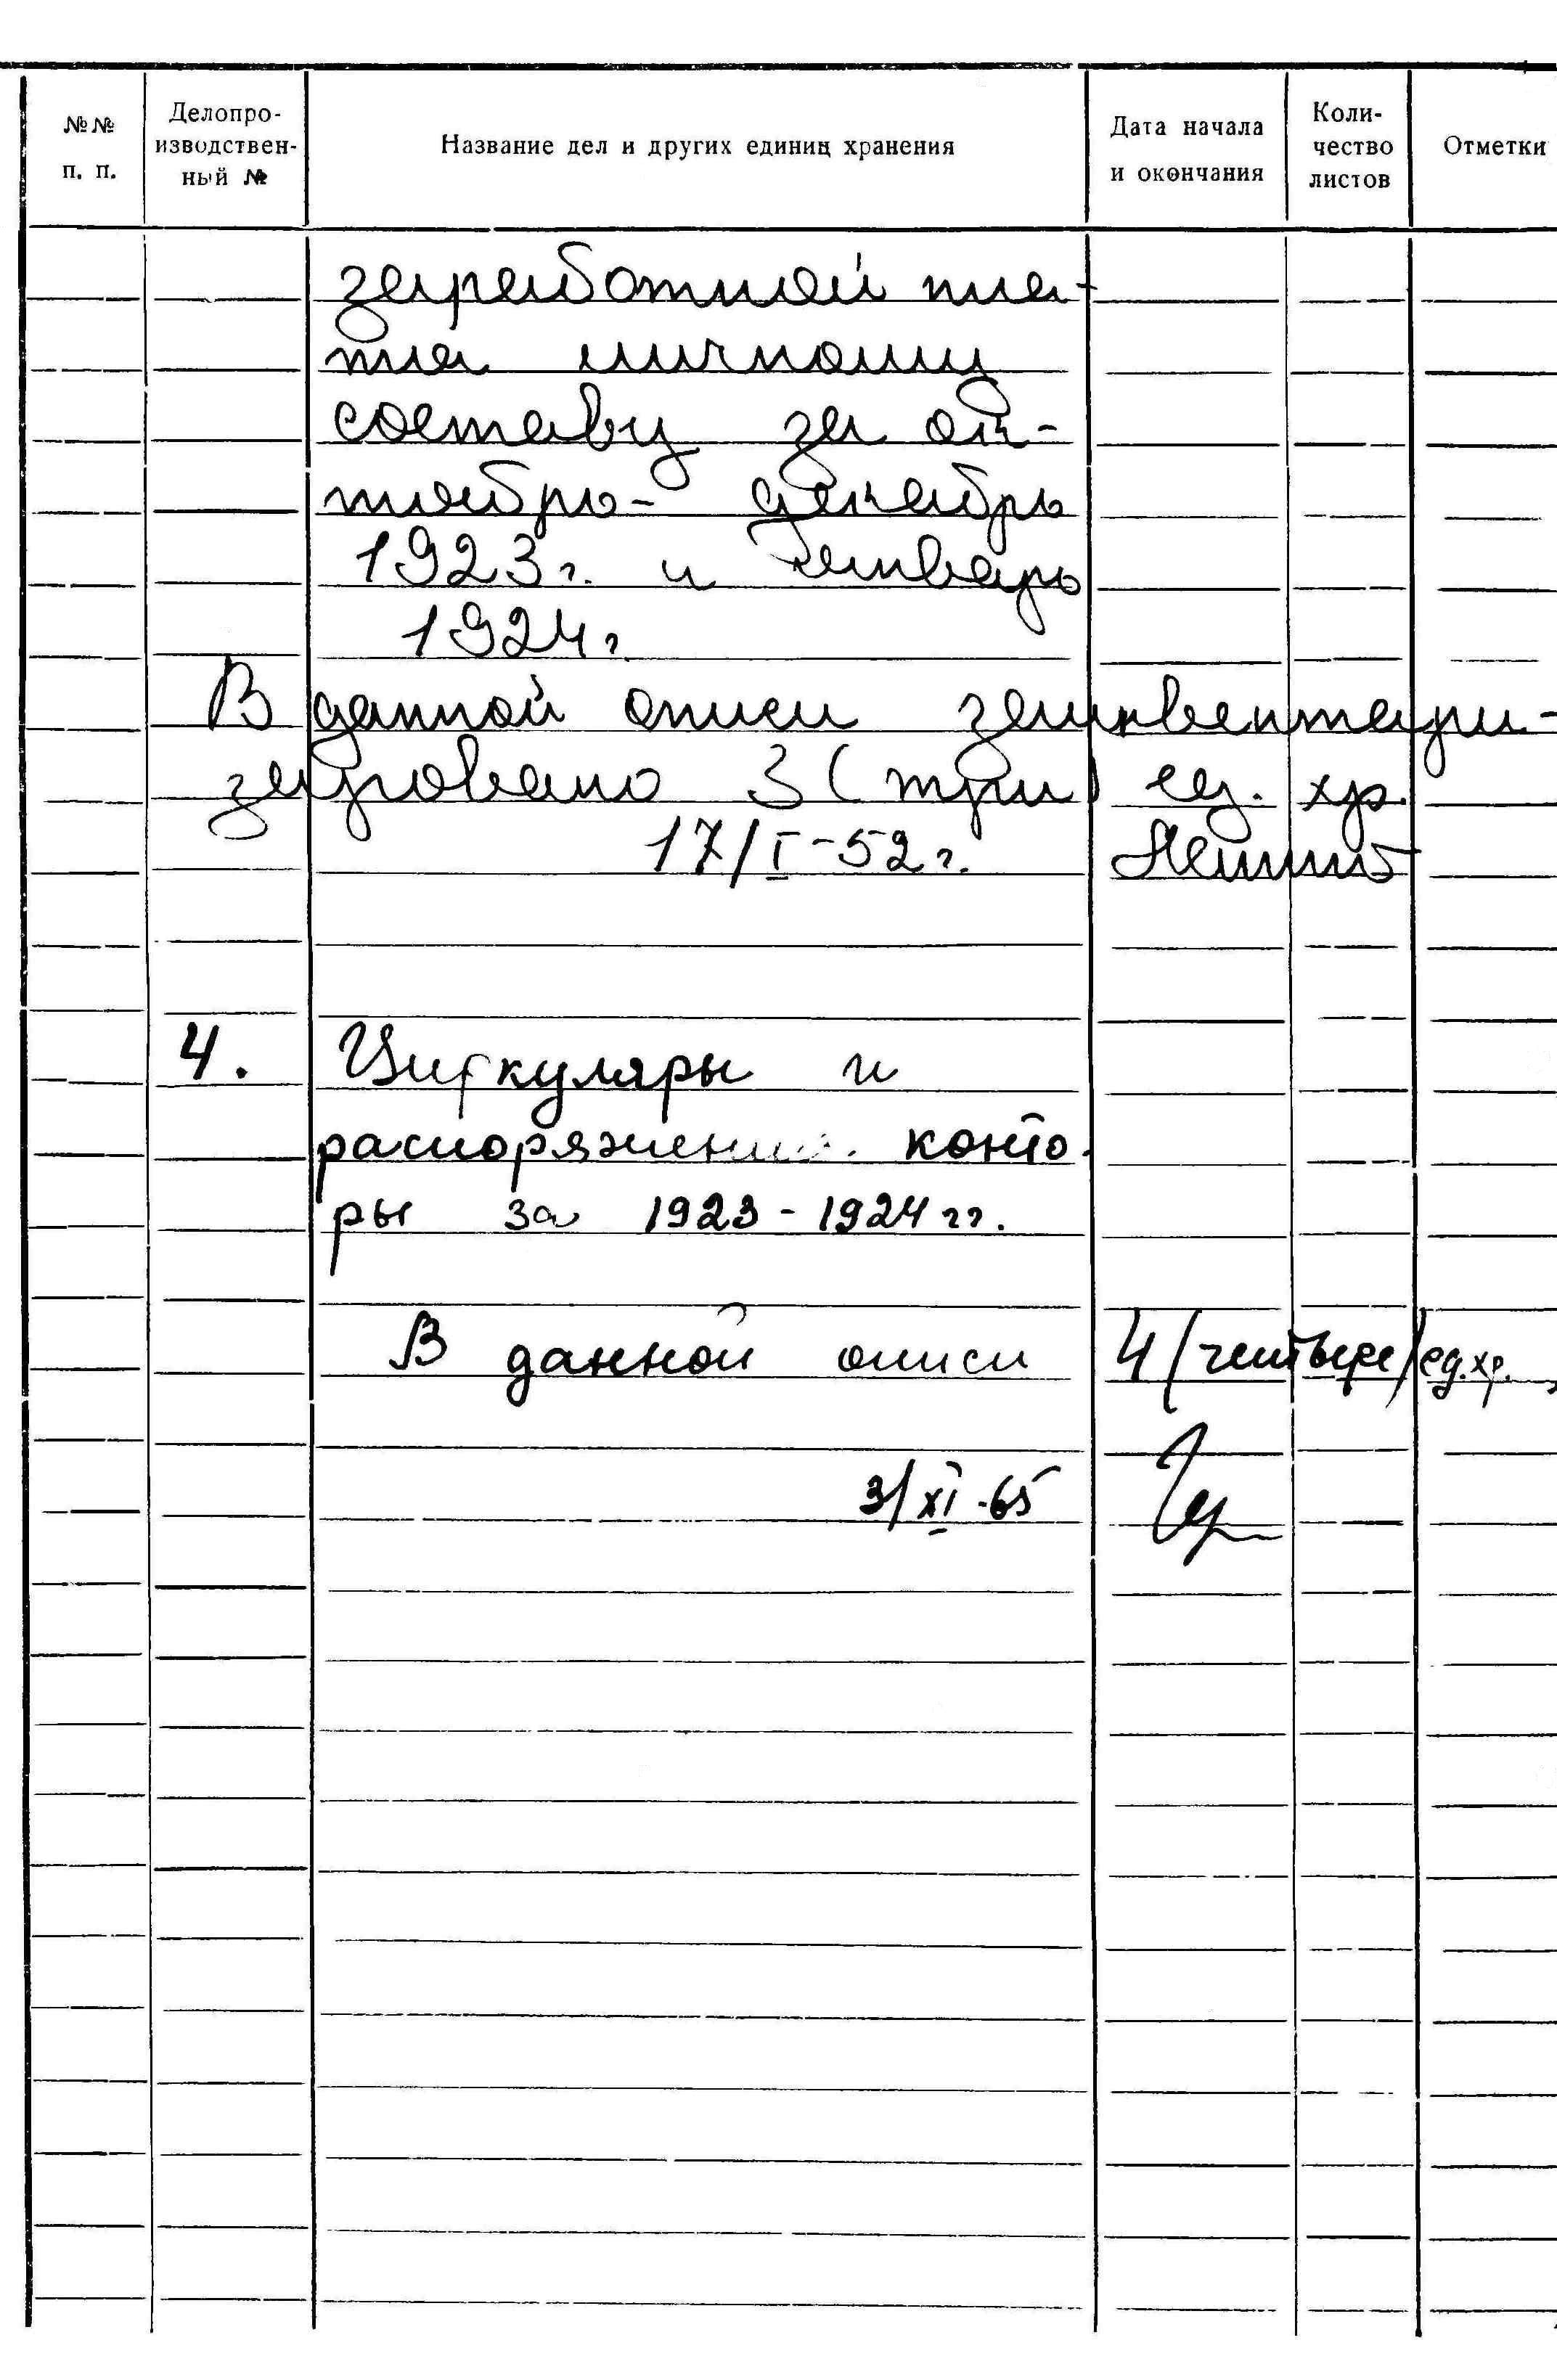 №№ п. п.
Делопро-
изводствен-
ный №
Название дел и других единиц хранения
Дата начала
и окончания
Коли-
чество
листов
Отметки
заработной пла-
ты личному
составу за ок-
тябрь- декабрь
1923г. и январь
1924г
В данной описи заинвентари-
зировано 3 (три) ед. хр.
17/I-52г.
4. Циркуляры и
распоряжения конто-
ры за 1923-1924 гг.
В данной описи 4/четыре/ед.хр.
3/XI-65